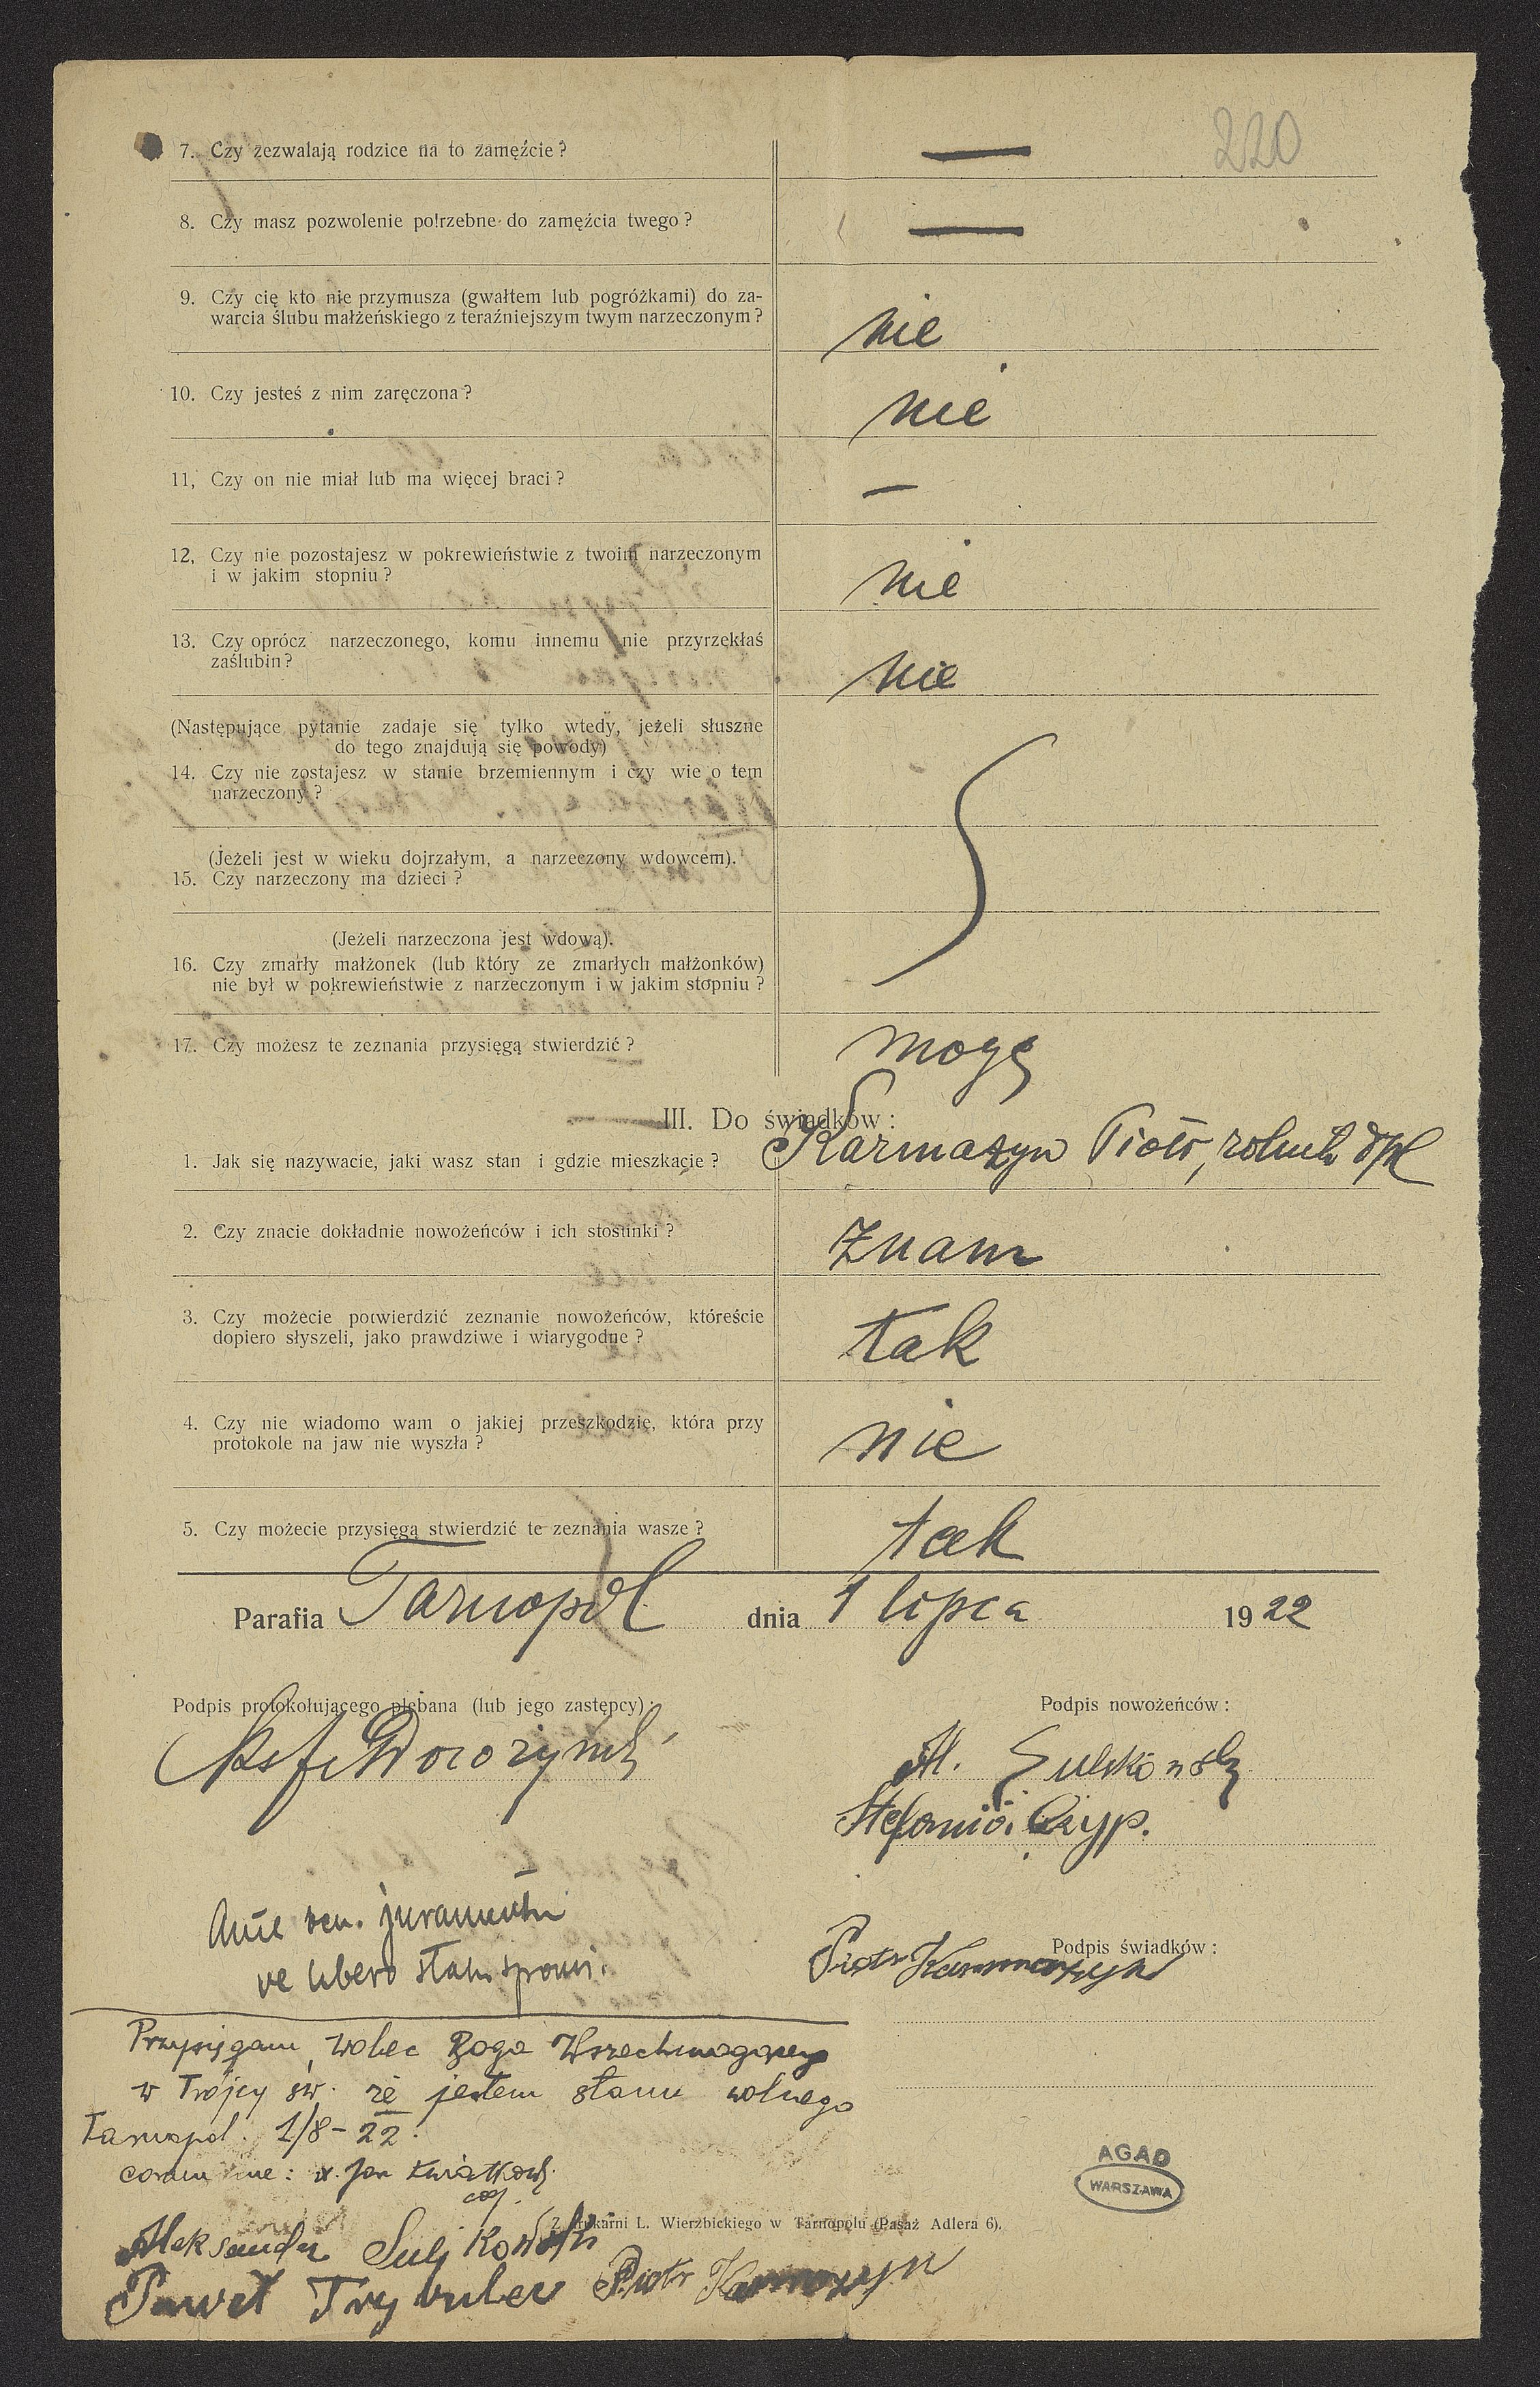 220
7. Czy zezwalają rodzice na to zamęźcie?
—
8. Czy masz pozwolenie potrzebne do zamęźcia twego?
—
9. Czy cię kto nie przymusza (gwałtem lub pogróżkami) do za-
warcia ślubu małżeńskiego z teraźniejszym twym narzeczonym?
nie
10. Czy jesteś z nim zaręczona?
nie
11, Czy on nie miał lub ma więcej braci?
—
12, Czy nie pozostajesz w pokrewieństwie z twoim narzeczonym
i w jakim stopniu?
nie
13. Czy oprócz narzeczonego, komu innemu nie przyrzekłaś
zaślubin?
nie
(Następujące pytanie zadaje się tylko wtedy, jeżeli słuszne
do tego znajdują się powody)
14. Czy nie zostajesz w stanie brzemiennym i czy wie o tem
narzeczony?
(Jeżeli jest w wieku dojrzałym, a narzeczony wdowcem).
15. Czy narzeczony ma dzieci?
(Jeżeli narzeczona jest wdową).
16. Czy zmarły małżonek (lub który ze zmarłych małżonków)
nie był w pokrewieństwie z narzeczonym i w jakim stopniu?
17. Czy możesz te zeznania przysięgą stwierdzić?
mogę
III. Do świadków:
1. Jak się nazywacie, jaki wasz stan i gdzie mieszkacie?
Karmazyn Piotr, rolnik
2. Czy znacie dokładnie nowożeńców i ich stosunki?
znam
3. Czy możecie potwierdzić zeznanie nowożeńców, któreście
dopiero słyszeli, jako prawdziwe i wiarygodne?
tak
4. Czy nie wiadomo wam o jakiej przeszkodzie, która przy
protokole na jaw nie wyszła?
nie
5. Czy możecie przysięgą stwierdzić te zeznania wasze?
tak
Parafia Tarnopol dnia 1 lipca 1922
Podpis protokołującego plebana (lub jego zastępcy):
Podpis nowożeńców:
Al. Sulikowski
Stefania Cyp.
juramenti
de libero statu
Podpis świadków:
Piotr Karmazyn
Przysięgam wobec Boga Wszechmogącego
w Trójcy św. że jestem stanu wolnego
Tarnopol. 1/8-22.
coram me: x. Jan Kwiatkowski
Z drukarni L. Wierzbickiego w Tarnopolu (Pasaż Adlera 6).
Aleksander Sulikowski
Paweł Piotr Karmazyn
AGAD
WARSZAWA